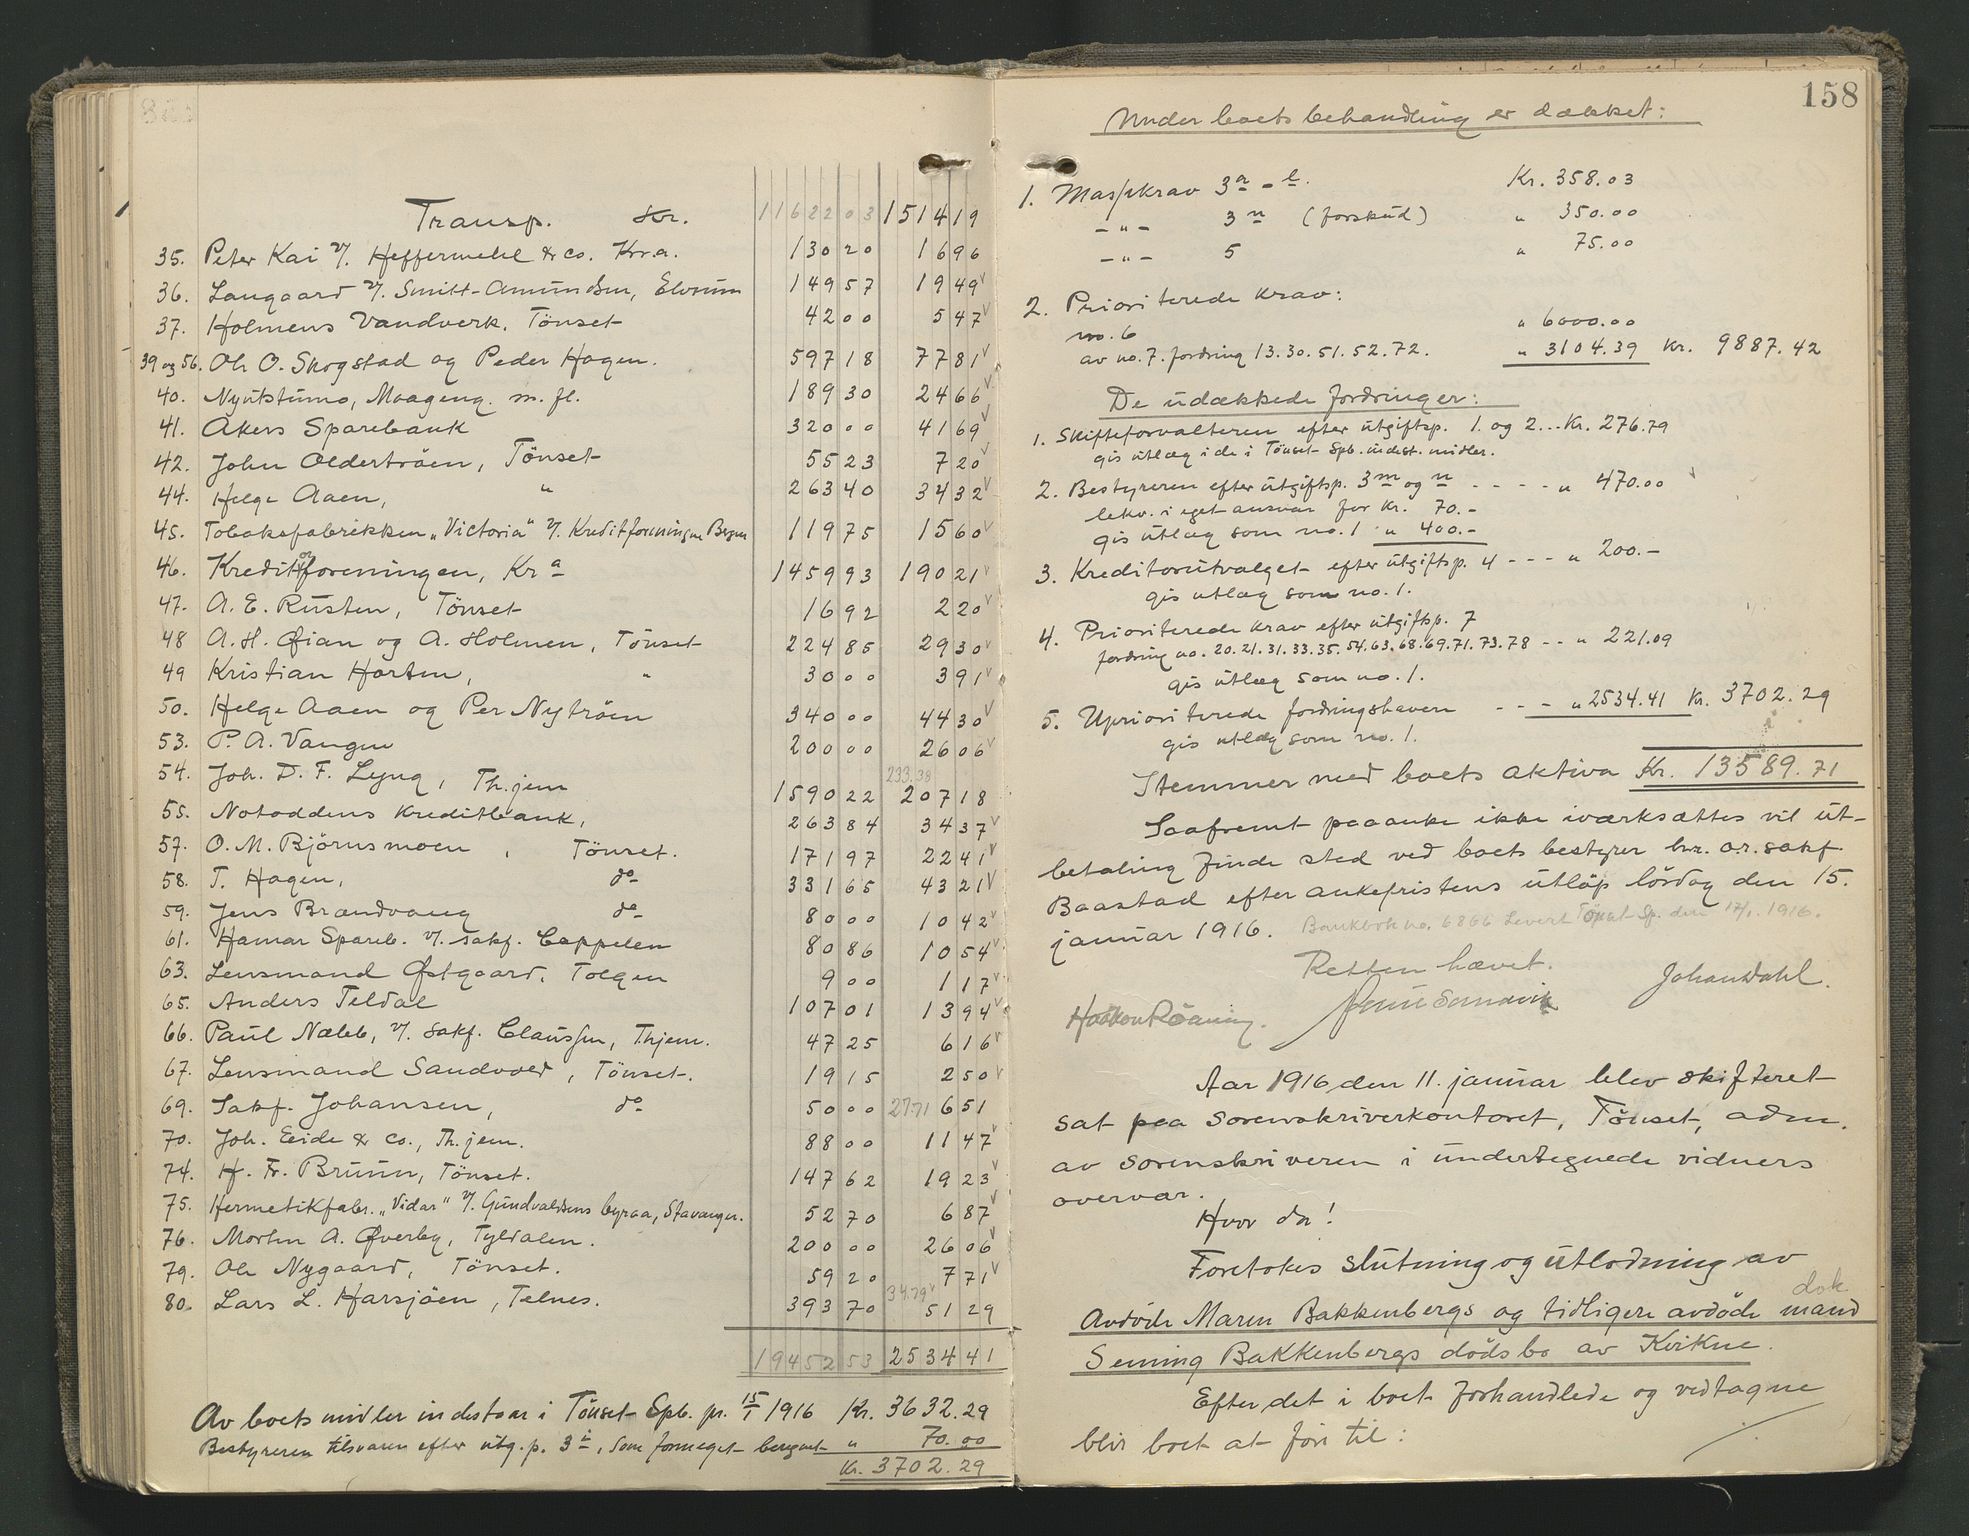 Transp. Kr. 11622 03 1514 19
35. Peter Kai v/. Heffermehl & co. Kr.a. 130 20 16 96
36. Langaard v/. Smitt-Amundsen, Elverum 149 57 19 49 v
37. Holmens Vandverk, Tönset 42 00 5 47 v
39 og 56. Ole O. Skogstad og Peder Hagen. 597 18 77 81 v
40. Nyutstumo, Moageng. m. fl. 189 30 24 66 v
41. Akers Sparebank 320 00 41 69 v
42. John Oldertröen, Tönset 55 23 7 20 v
44. Helge Aaen, " 263 40 34 32 v
45. Tobaksfabrikken „Victoria" v/. Kreditforeningen Bergen 119 75 15 60 v
46. Kreditorforeningen, Kra 1459 93 190 21 v
47. A. E. Rusten, Tönset 16 92 2 20 v
48 A. H. Øian og A. Holmen, Tönset 224 85 29 30 v
49 Kristian Horten, " 30 00 3 91 v
50. Helge Aaen og Per Nytröen 340 00 44 30 v
53. P. A. Vangen 200 00 26 06 v
233.38
54. Joh. D. F. Lyng, Th.jem 1590 22 207 18
55. Notoddens Kreditbank, 263 84 34 37 v
57. O. M. Björnsmoen, Tönset. 171 97 22 41 v
58. T. Hagen, do 331 65 43 21 v
59. Jens Brandvang do 80 00 10 42 v
61. Hamar Spareb. v/. sakf. Cappelen 80 86 10 54 v
63. Lensmand Østgaard, Tolgen 9 00 1 17 v
65. Anders Teldal 107 01 13 94 v
66. Paul Næbb, v/. sakf. Claussen, Thjem. 47 25 6 16 v
67. Lensmand Sandvold, Tönset. 19 15 2 50 v
69. Sakf. Johansen, do 50 00 27.71 6 51
70. Joh. Eide & co., Th.jem. 88 00 11 47 v
74. H. Fr. Bruun, Tönset. 147 62 19 23 v
75. Hermetikfabr. „Vidar" v/. Gundvaldsens byraa, Stavanger. 52 70 6 87 v
76. Morten A. Øverby, Tyldalen. 200 00 26 06 v
79. Ole Nygaard, Tönset. 59 20 7 71 v
34.79 v
80. Lars L. Harsjöen, Telnes. 393 70 51 29
19452 53 2534 41
Av boets midler indestaar i Tönset Spb. pr. 15/1 1916 Kr. 3632.29
Bestyreren tilsvaren efter utg.p. 3 i, som formeget beregnet " 70.00
Kr. 3702.29
158
Under boets behandling er dækket:
1. Massekrav 3 a - l. Kr. 358.03
- " - 3 n (forskud) " 350.00
- " - 5 " 75.00
2. Prioriterede krav:
no. 6 " 6000.00
av no. 7. fordring 13. 30. 51. 52. 72. " 3104.39 Kr. 9887.42
De udækkede fordringer:
1. Skifteforvalteren efter utgiftsp. 1. og 2... Kr. 276.79
gis utlæg i de i Tönset Spb. indest. midler.
2. Bestyreren efter utgiftsp. 3 m og n - - - - " 470.00
lekv. i eget ansvar for Kr. 70.-
gis utlæg som no. 1 " 400.-
3. Kreditorutvalget efter utgiftsp. 4 - - - " 200.-
gis utlæg som no. 1.
4. Prioriterede krav efter utgiftsp. 7
fordring no. 20. 21. 31. 33. 35. 54. 63. 68. 69. 71. 73. 78 - - " 221.09
gis utlæg som no. 1.
5. Uprioriterede fordringshavere - - - " 2534.41 Kr. 3702.29
gis utlæg som no. 1.
Stemmer med boets aktiva Kr. 13589.71
Saafremt paaanke ikke iværksættes vil ut-
betaling finde sted ved boets bestyrer hr. o.r.sakf.
Baastad efter ankefristens utløp lördag den 15.
januar 1916. Bankbok no. 6866 Levert Tönset Sp. den 17/1. 1916.
Retten hævet.
Haakon Röaning. Sandvik Johan Dahl.
Aar 1916, den 11. januar blev skifteret
sat paa sorenskriverkontoret, Tönset, adm.
av sorenskriveren i undertegnede vidners
overvær.
Hvor da!
Foretokes slutning og utlodning av
dok
Avdöde Maren Bakkenbergs og tidligere avdöde mand
Sening Bakkenbergs dödsbo av Kvikne.
Efter det i boet forhandlede og vedtagne
blir boet at före til: